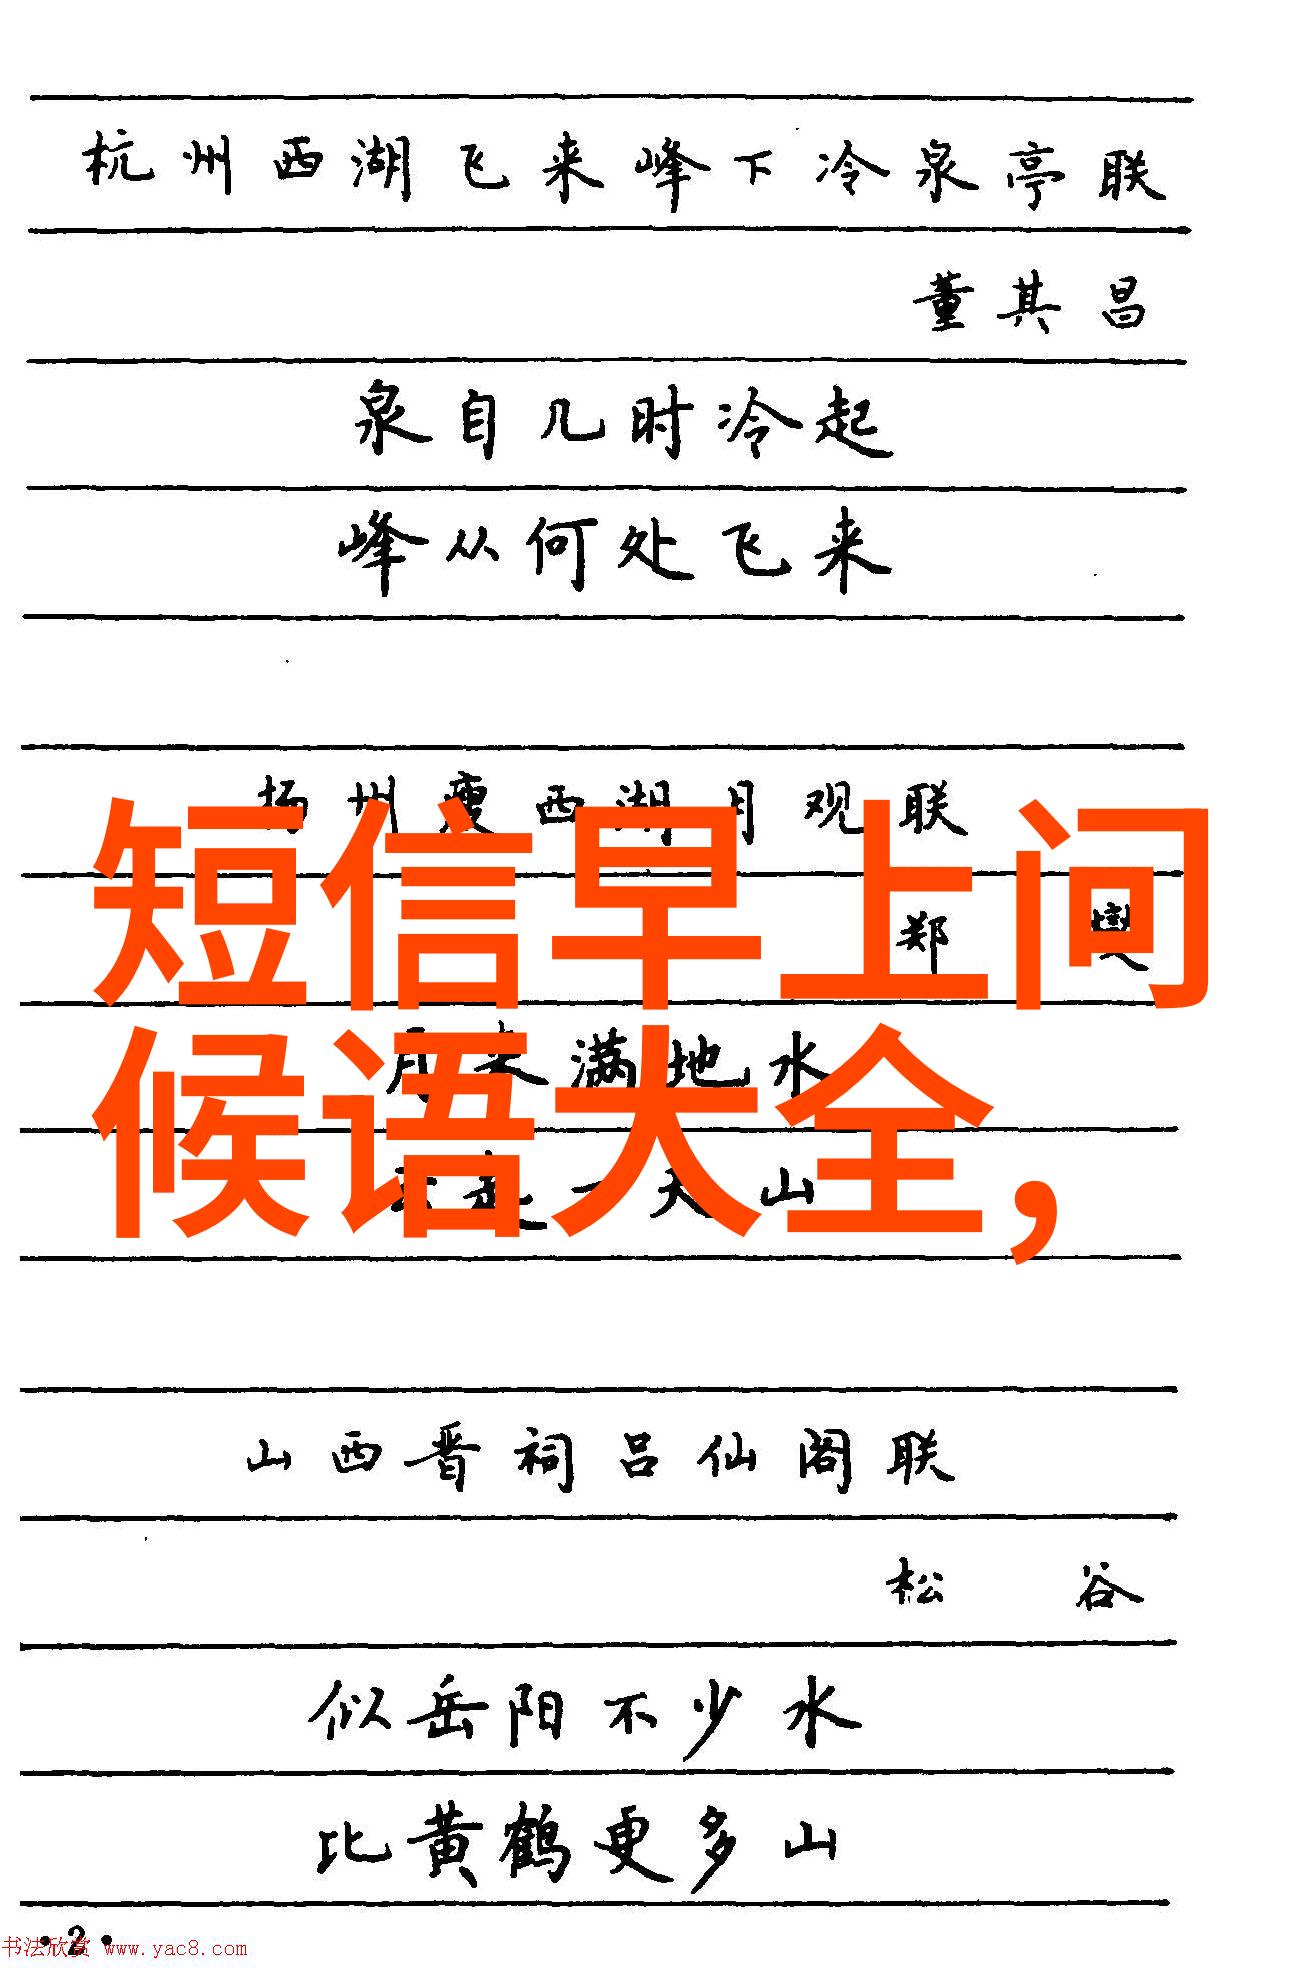 杭州西湖飞来峰下冷泉亭联
董其昌
泉自几时冷起
峰从何处飞来
扬州瘦西湖月观联
短信早上问
郑
月来满地水
候语大全，
一天山
山西晋祠吕仙阁联
松谷
似岳阳不少水
比黄鹤更多山
·2·
书法欣赏 www.yac8.com